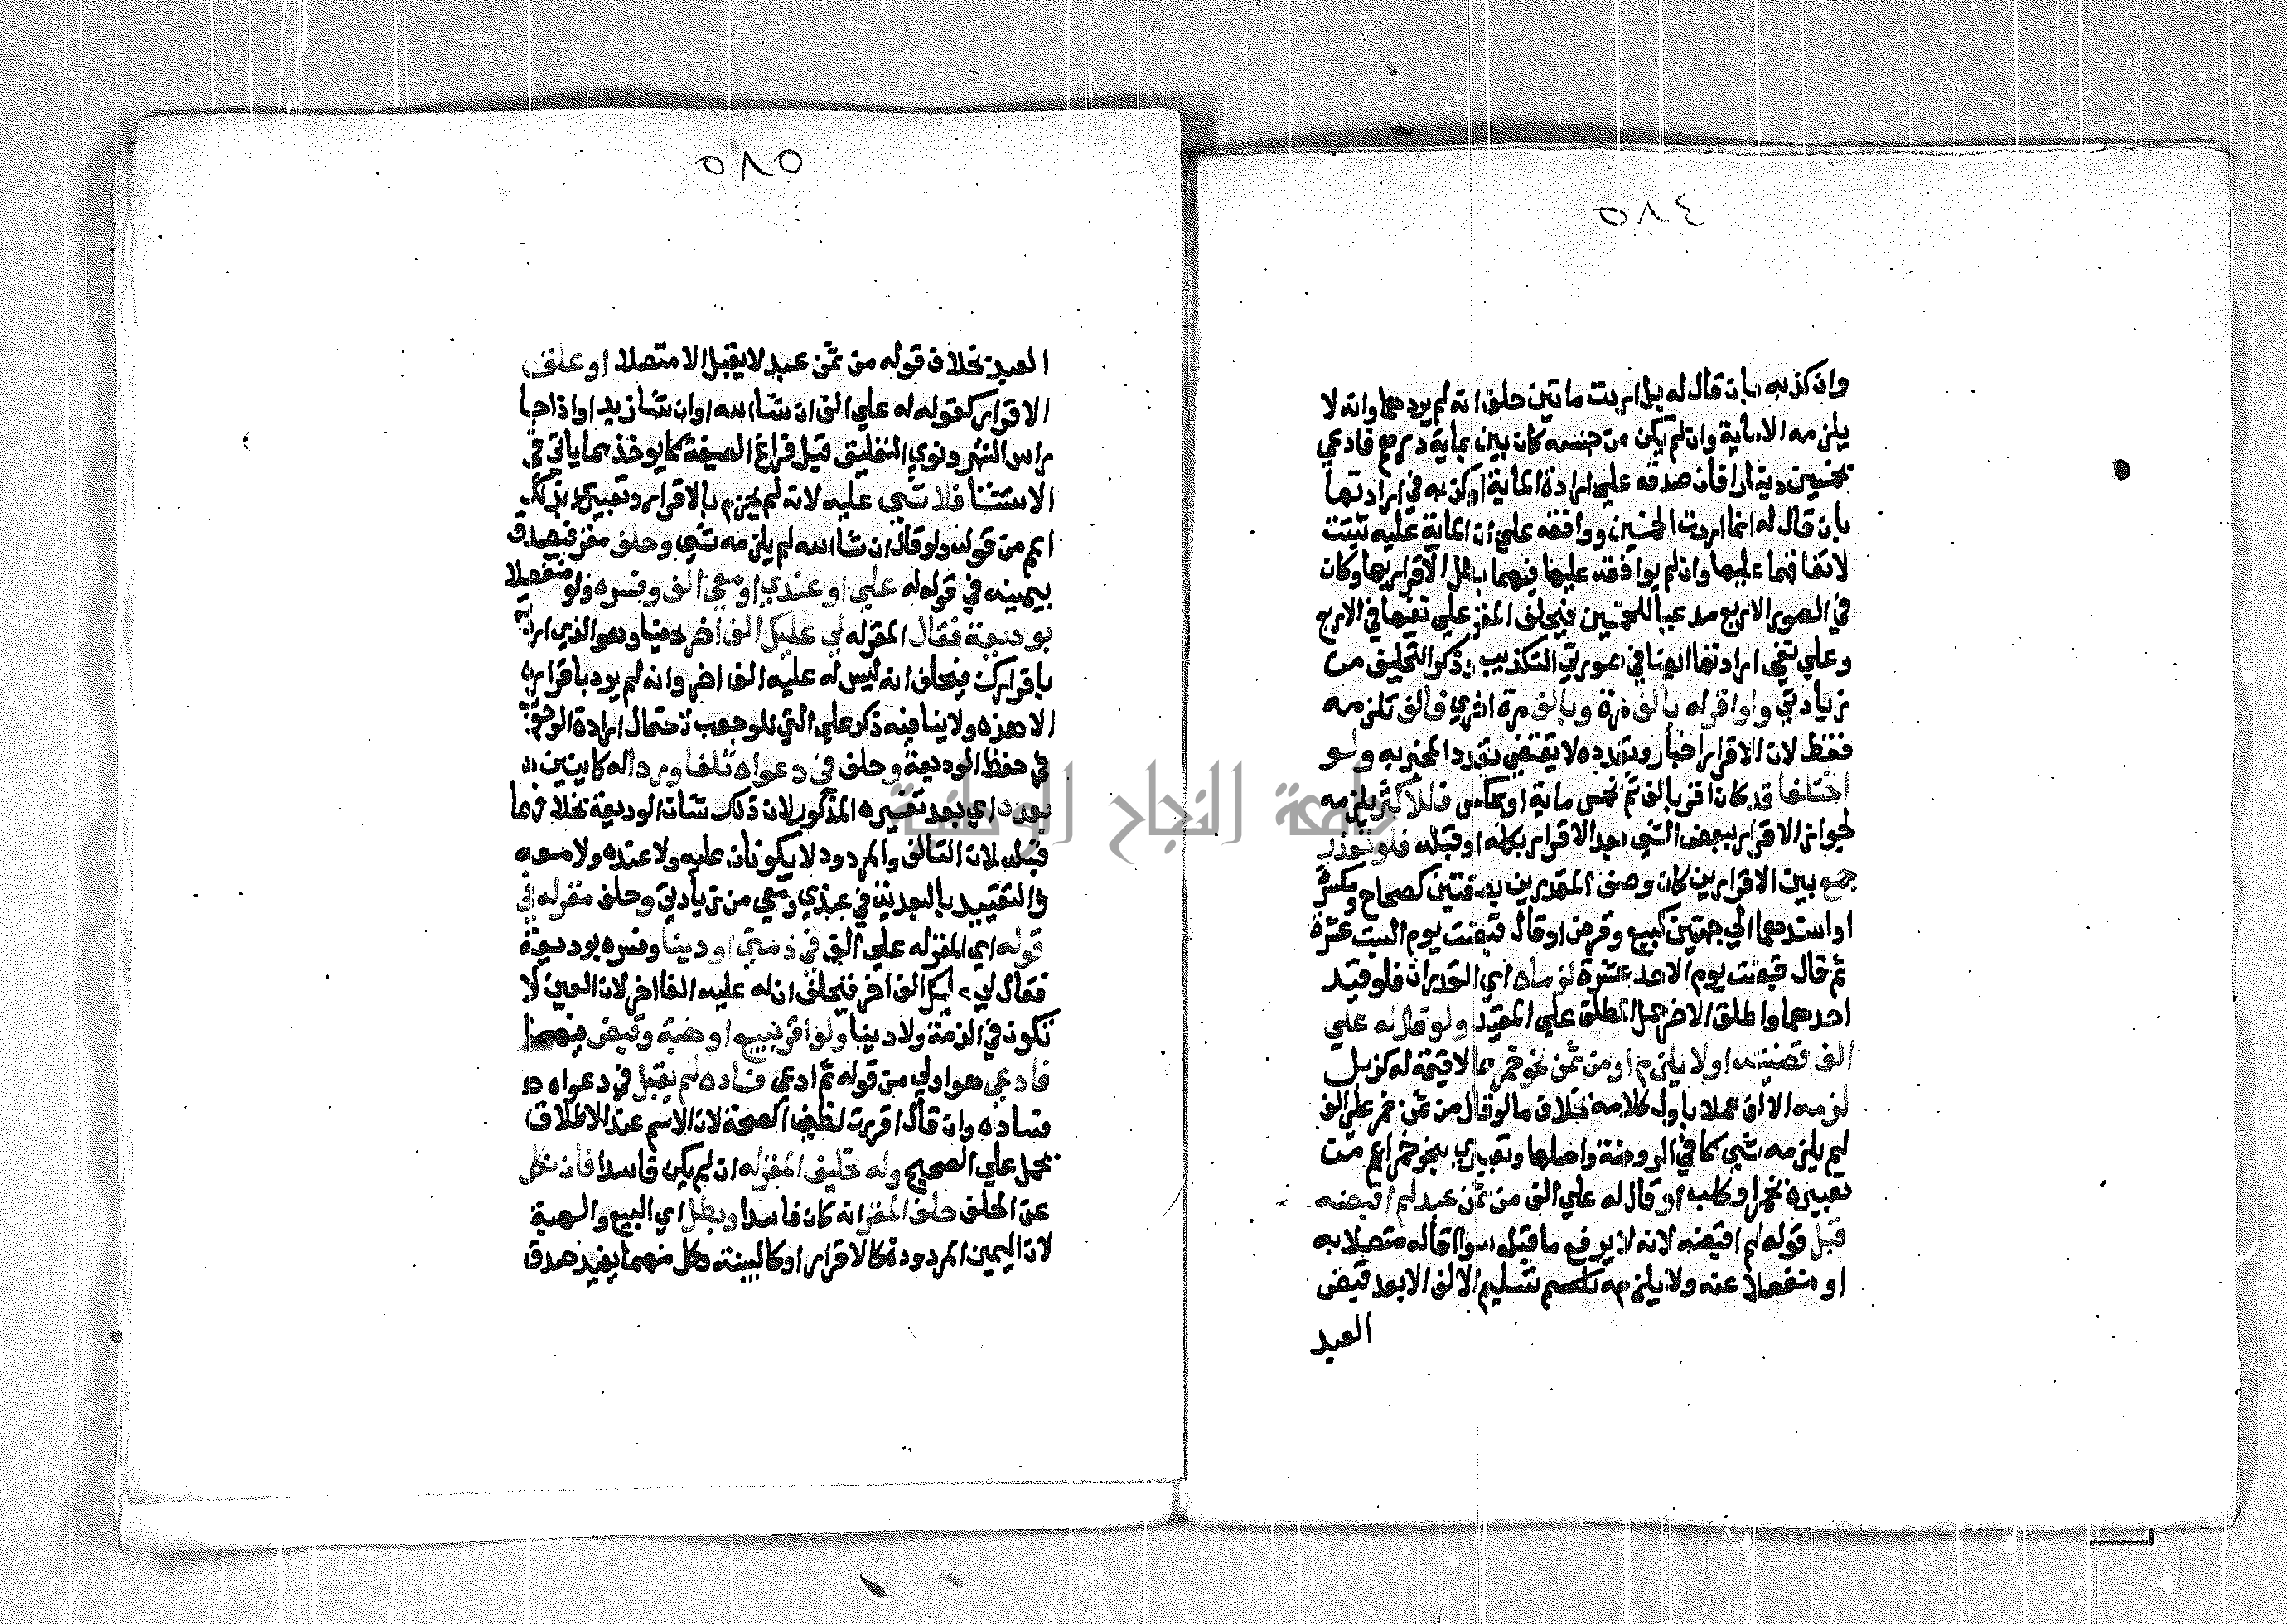 ٥٨٤
وان كذبه بان قال له بل اردت مايتين حلف انه لم يردهما وانه لا
يلزمه الا ماية وان لم يكن من جنسه كان بين بماية درهم فادعي
بخمسين دينارا فان صدقه علي ارادة الماية او كذبه في ارادتها
بان قال له انما اردت الخمسين ووافقه علي ان الماية عليه ثبتت
لاتفاقهما عليها وان لم يوافقه عليها فيهما بطل الاقرار بها وكان
في الصور الاربع مدعيا للخمسين فيحلف المقر علي نفيها في الاربع
وعلي نفي ارادتها ايضا في صورتي التكذيب وذكر التحليف من
زيادتي ولو اقر له بالف مرة وبالف مرة اخري فالف تلزمه
فقط لان الاقرار اخبار وتعدده لا يقتضي تعدد المخبر به ولو
اختلفا قدرا كان اقر بالف ثم بخمس ماية او عكس فللاكثر يلزمه
لجواز الاقرار ببعض الشي بعد الاقرار بكله او قبله فلو تعذر
جمع بين الاقرارين كان وصف المقدرين بصفتين كصحاح ومكسرة
او اسندهما الي جهتين كبيع وقرض او قال قبضت يوم السبت عشرة
ثم قال قبضت يوم الاحد عشرة لزماه اي القدران فلو قيد
احدهما واطلق الاخر حمل المطلق علي المقيد ولو قال له علي
الف قضيته او لا يلزم او من ثمن نحو خمر مما لا قيمة له كزبل
لزمه الالف عملا باول كلامه بخلاف ما لو قال من ثمن خمر علي الف
لم يلزمه شي كما في الروضة واصلها وتعبيري بنحو خمر اعم من
تعبيره بخمر او كلب او قال له علي الف من ثمن عبد لم اقبضه
قبل قوله لم اقبضه لانه لا يرفع ما قبله سوا اقاله متصلا به
او منفصلا عنه ولا يلزمه تسليم الالف الا بعد قبض
العبد
٥٨٥
العبد بخلاف قوله من ثمن عبد لا يقبل الا متصلا او علق
الاقرار كقوله له علي الف ان شا الله او ان شا زيد او اذا جا
راس الشهر ونوي التعليق قبل فراغ الصيغة كما يوخذ مما ياتي في
الاستثنا فلا شي عليه لانه لم يجزم بالاقرار وتعبيري بذلك
اعم من قوله ولو قال ان شا الله لم يلزمه شي وحلف مقر فيصدق
بيمينه في قوله له علي او عندي او معي الف وفسره ولو منفصلا
بوديعة فقال المقر له لي عليك الف اخر دينا وهو الذي اردته
باقرارك فيحلف انه ليس له عليه الف اخر وانه لم يرد باقراره
الا هذه ولا ينافيه ذكر علي التي للوجوب لاحتمال ارادة الوجوب
في حفظ الوديعة وحلف في دعواه تلفا وردا له كاينين
بعده اي بعد تفسيره المذكور لان ذلك شان الوديعة بخلافهما
قبله لان التالف والمردود لا يكونان عليه ولا عنده ولا معه
والتقييد بالبعدية في عندي ومعي من زيادتي وحلف مقر له في
قوله اي المقر له علي الف في ذمتي او دينا وفسره بوديعة
فقال لي عليك الف اخر فيحلف ان له عليه الفا اخر لان العين لا
تكون في الذمة ولا دينا ولو اقر ببيع او هبة وقبض فيهما
فادعي هو اولي من قوله ثم ادعي فساده لم يقبل في دعواه
فساده وان قال اقررت لظني الصحة لان الاسم عند الاطلاق
يحمل علي الصحيح وله تحليف المقر له ان لم يكن فاسدا فان نكل
عن الحلف حلف المقر انه كان فاسدا وبطل اي البيع والهبة
لان اليمين المردودة كالاقرار او كالبينة وكل منهما يفيد صدق
جامعة النجاح الوطنية